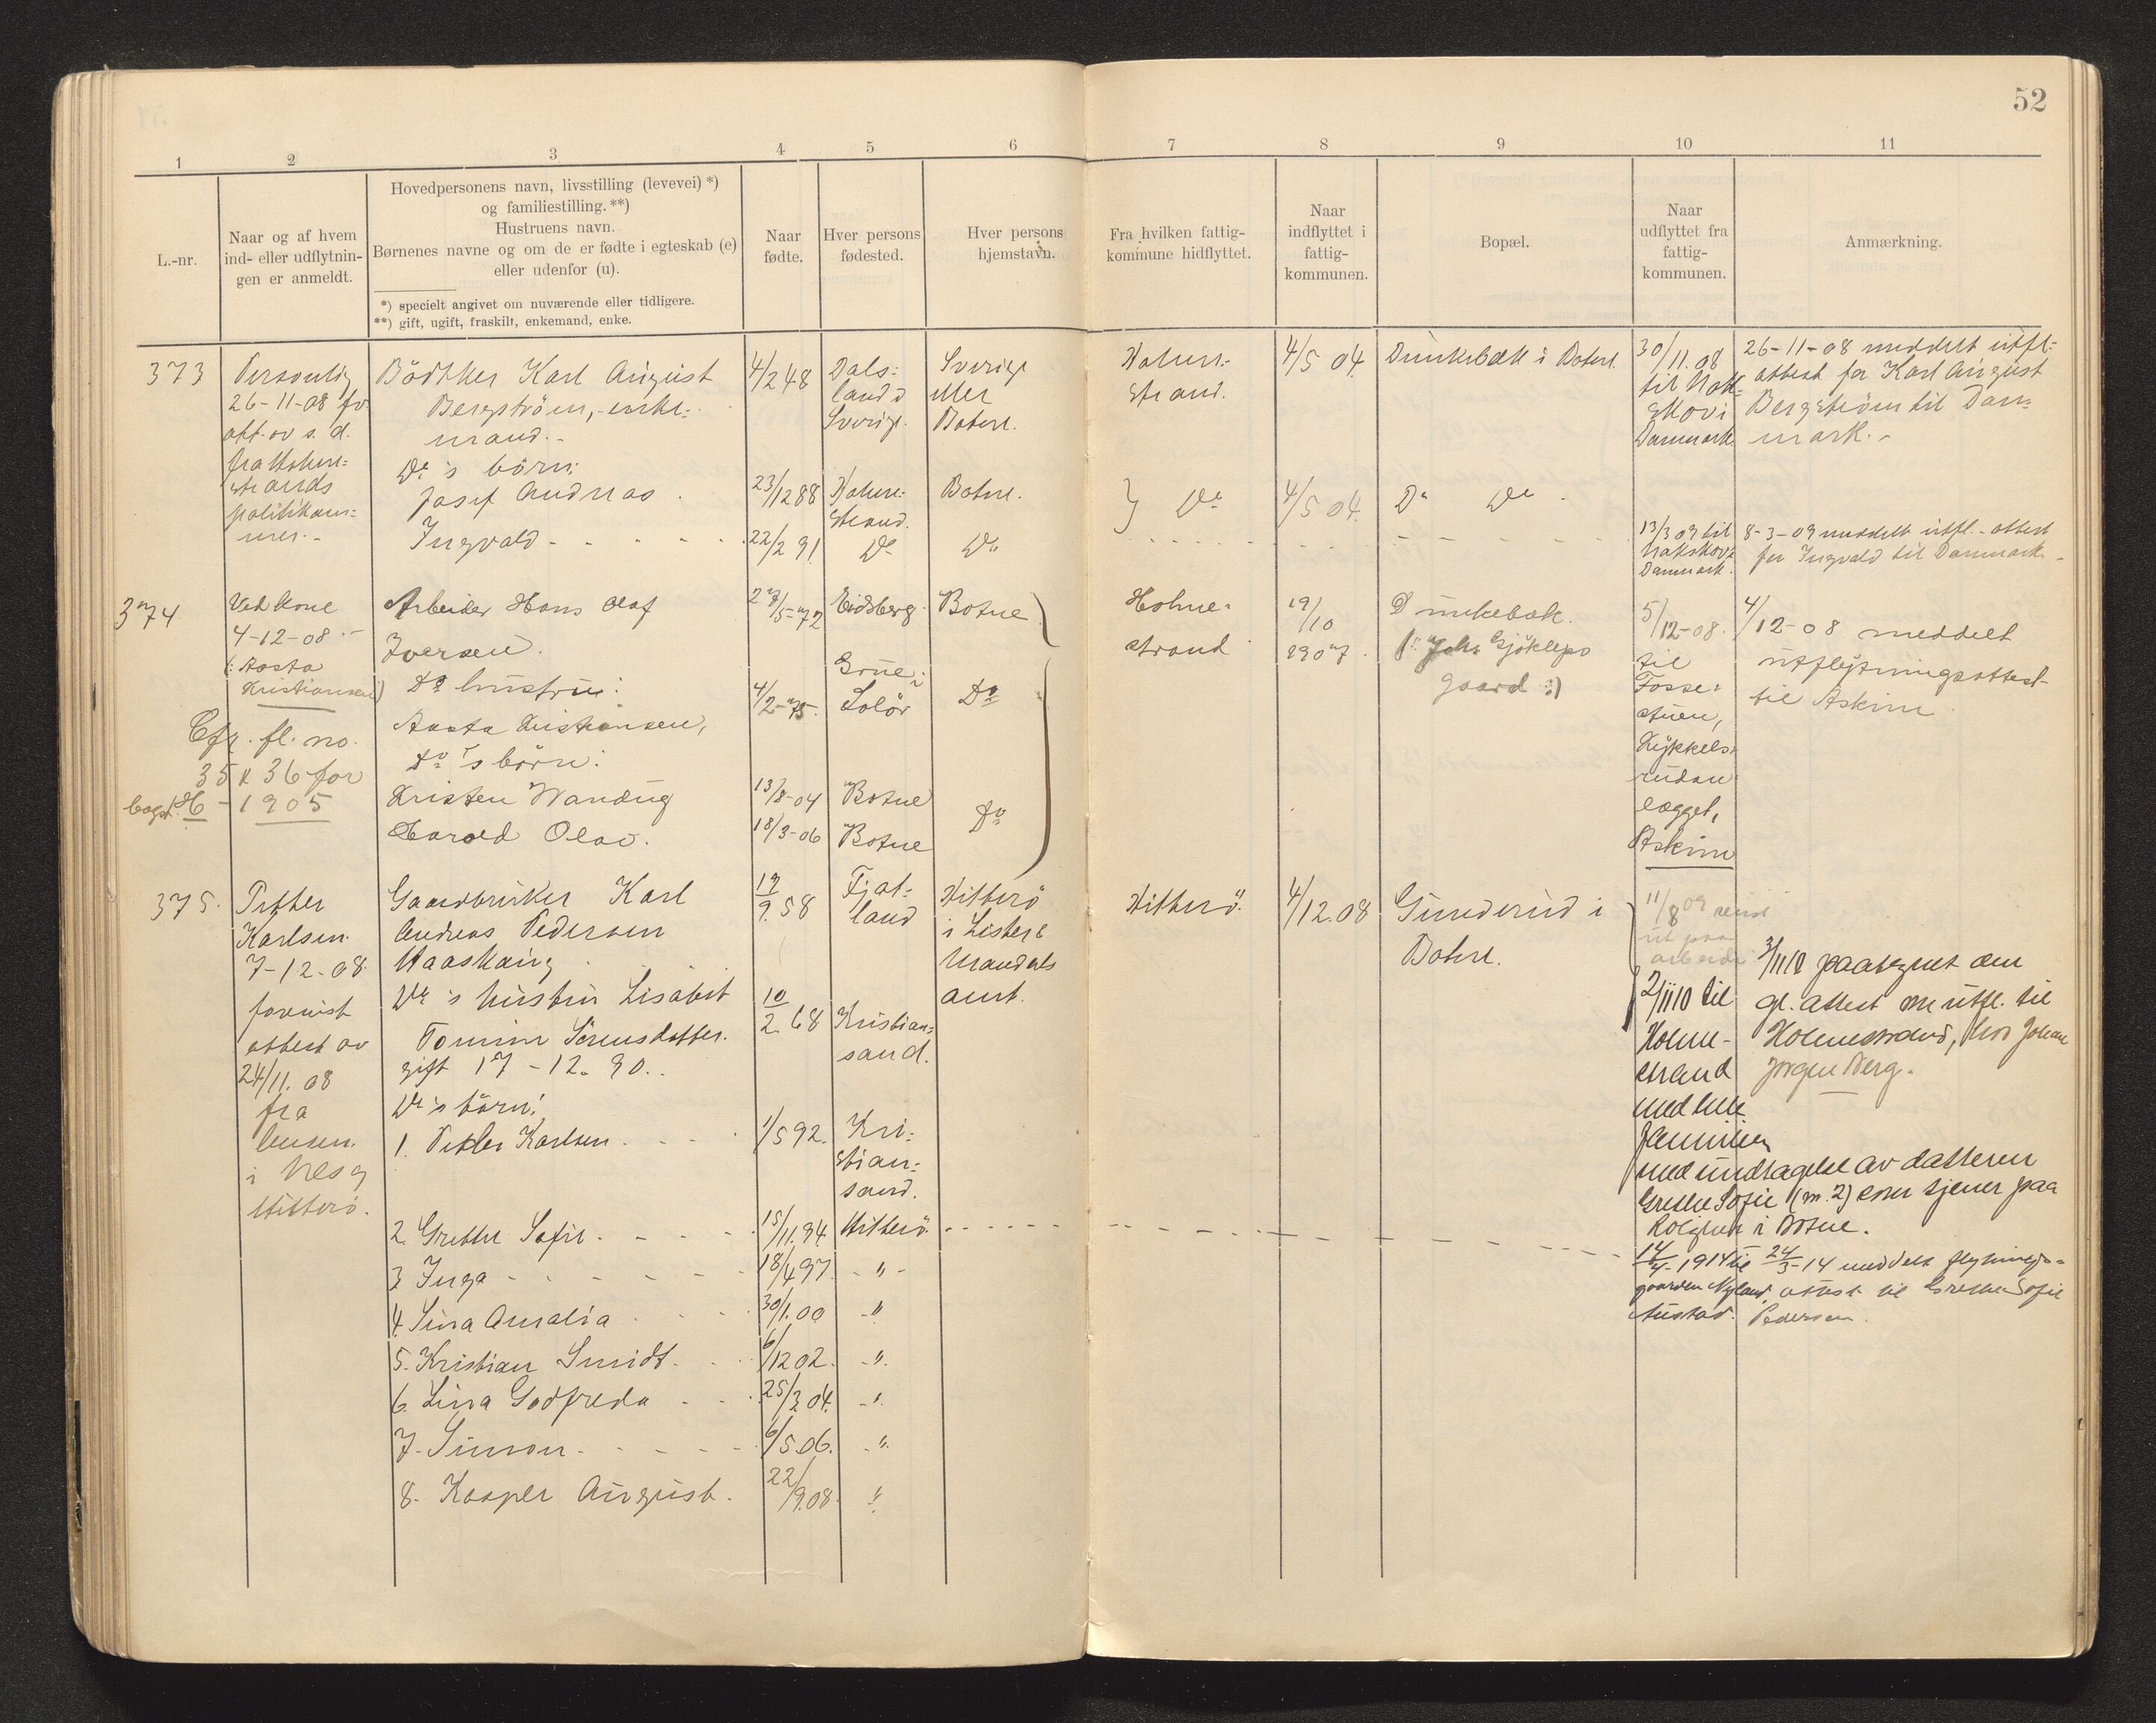 52
1
2
3
4
5
6
7
8
9
10
11
L.-nr.
Naar og af hvem
ind- eller udflytnin-
gen er anmeldt.
Hovedpersonens navn, livsstilling (levevei) *)
og familiestilling. **)
Hustruens navn.
Børnenes navne og om de er fødte i egteskab (e)
eller udenfor (u).
*) specielt angivet om nuværende eller tidligere.
**) gift, ugift, fraskilt, enkemand, enke.
Naar
fødte.
Hver persons
fødested.
Hver persons
hjemstavn.
Fra hvilken fattig-
kommune hidflyttet.
Naar
indflyttet i
fattig-
kommunen.
Bopæl.
Naar
udflyttet fra
fattig-
kommunen.
Anmærkning.
373
Personlig
26-11-08 fr
att. av s. d.
fra Holme=
strands
politikam=
mer.-
Bödtker Karl August
Bergström,-enke=
mand.-
Do's börn:
Josef Andreas
Ingvald - - - - -
4/2 48
23/12 88
22/2 91
Dals=
land i
Sverige.
Holme=
strand.
Do
Sverige
eller
Botne.
Botne.
Do
Holme=
strand.
} Do
4/5 04
4/5 04.
Dunkebæk i Botne.
Do Do
30/11.08
til Nak=
skov i
Danmark
13/3 09 til
Nakskov i
Danmark.
26-11-08 meddelt utfl=
attest for Karl August
Bergström til Dan=
mark.-
8-3-09 meddelt utfl.-attest
for Ingvald til Danmark.-
374
Ved kone
4-12-08.-
(: Aasta
Kristiansen)
Cfr. fl. no.
35 & 36 for
bogst. H - 1905
Arbeider Hans Olaf
Iversen.
Do hustru:
Aasta Kristiansen,
Do's börn:
Kristen Wandug
Harald Olav.
27/5-72
4/2-75.
13/8-04
18/3-06
Eidsberg
Grue i
Solör
Botne
Botne
Botne
Do
Do
Holme=
strand
19/10
1907
Dunkebæk.
(: Johs Gjökleps
gaard :)
5/12-08.
til
Fosse=
stuen,
Kykkels=
rudan
lægget,
Askim
4/12-08 meddelt
utflytningsattest
til Askim
375.
Petter
Karlsen
7-12-08
forevist
attest av
24/11.08
fra
lensm.
i Nes og
Hitterö.
Gaardbruker Karl
Andreas Pedersen
Do's hustru Lisabet
Tomine Sörensdatter.
gift 17-12-90.
Do's börn:
1. Petter Karlsen
2. Grethe Sofie
3 Inga
4. Sina Amalia
5. Kristian Smidt.
6. Lina Godfreda
7. Simon
8. Kasper August.
17/9.58
10/2.68
1/5 92.
15/11.94
18/4 97
30/1.00
6/12 02.
25/3 04.
6/5 06.
22/9.08
Fjot=
land
Kristian=
sand.
Kri=
stian=
sand.
Hitterö
- " -
"
- ".
- ".
- ".
"
Hitterö
i Lister &
Mandals
amt.
Hitterö.
4/12.08
Gunderud i
Botne.
11/8 09 reist
ut paa
arbeide
2/11 10 til
Holme-
strand
med hele
familien
med undtagelse av datteren
Grethe Sofie (nr. 2) som tjener paa
i Botne.
14/4-1914 til
gaarden Nyland,
3/11 10 paategnet den
gl. attest om utfl. til
Holmestrand, hos Johan
Jörgen Berg.
24/3-14 meddelt flytnings=
attest til Grethe Sofie
Pedersen.